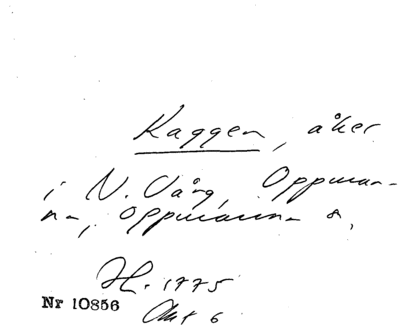 Kaggen, åker
i N. Vång, Oppman-
na, Oppmanna s,
H. 1775
Nr 10856
Akt 6